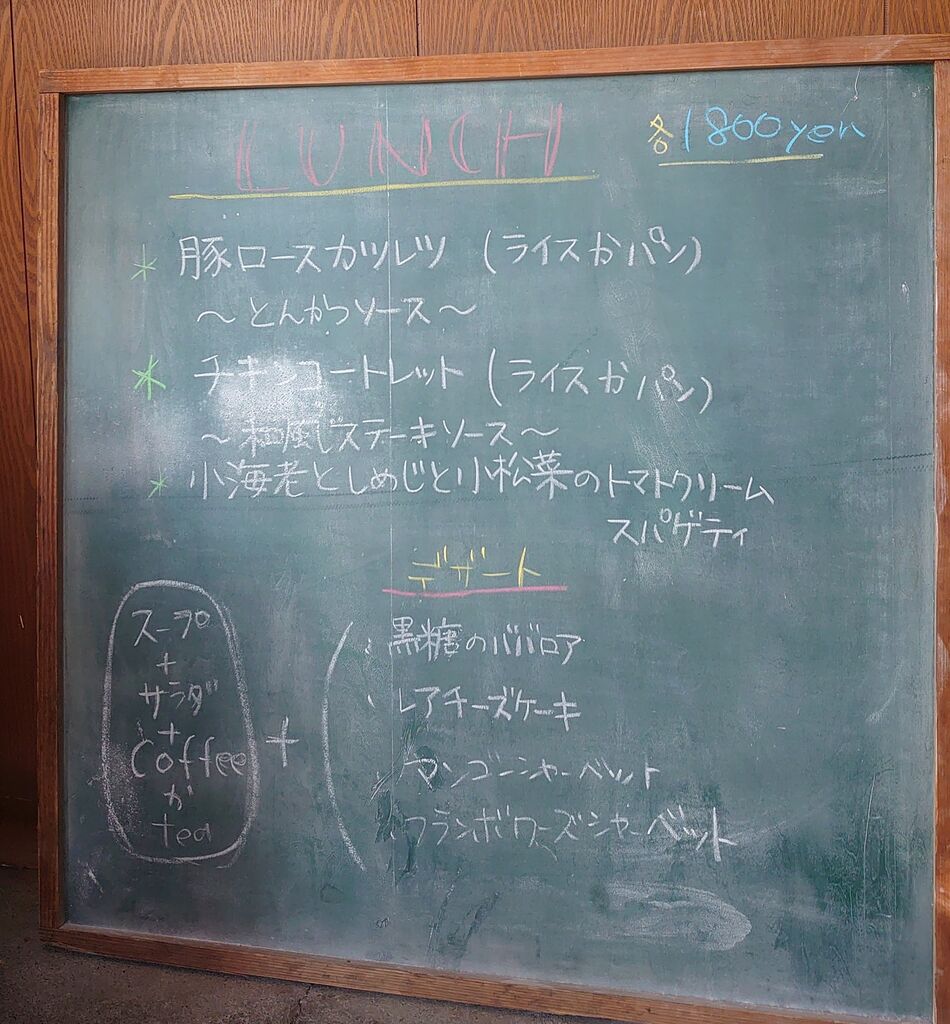 LUNCH 各1800yen
* 豚ロースカツレツ (ライスかパン)
~とんかつソース~
* チキンコートレット (ライスかパン)
~和風ステーキソース~
* 小海老としめじと小松菜のトマトクリーム
スパゲティ
デザート
・黒糖のババロア
・レアチーズケーキ
・マンゴーシャーベット
・フランボワーズシャーベット
スープ
+
サラダ
+
Coffee
か
tea
+
(